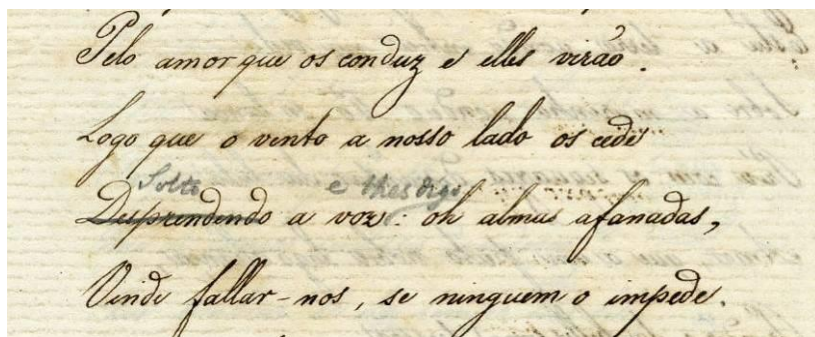 Pelo amor que os conduz e elles virão.
Logo que o vento a nosso lado os cede
Solto e lhes digo
Desprendendo a voz: oh almas afanadas,
Vinde fallar-nos, se ninguem o impede.